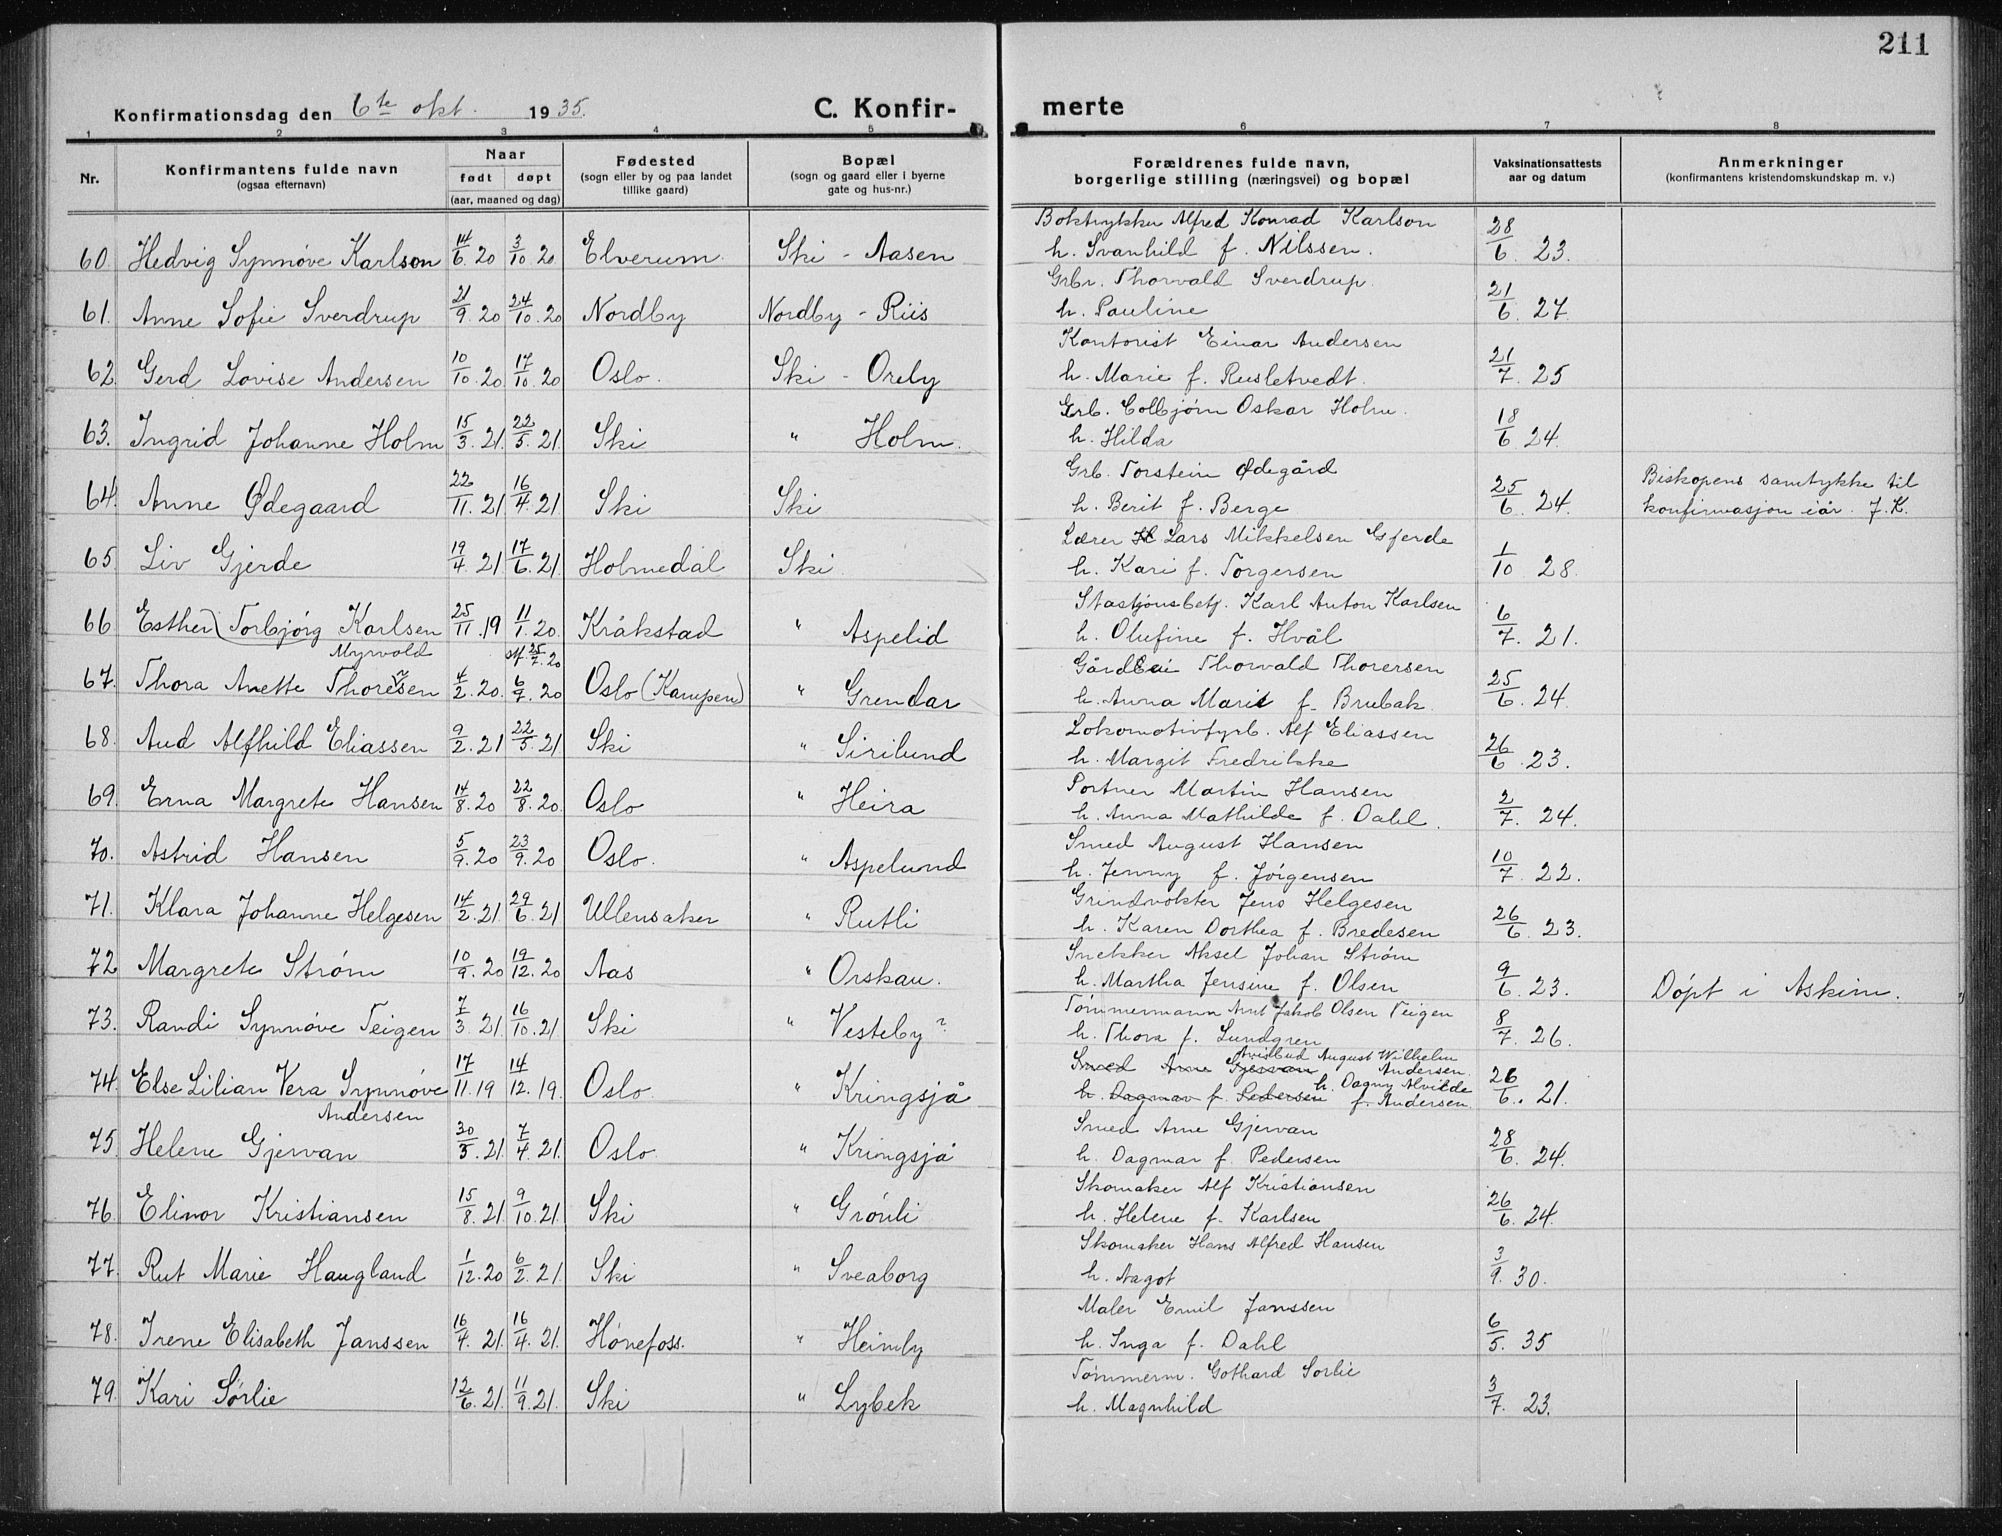 211
Konfirmationsdag den 6te okt. 1935. C. Konfir- merte
1 2 3 4 5 6 7 8
Nr. Konfirmantens fulde navn (ogsaa efternavn) Naar født døpt (aar, maaned og dag) Fødested (sogn eller by og paa landet tillike gaard) Bopæl (sogn og gaard eller i byerne gate og hus-nr.) Forældrenes fulde navn, borgerlige stilling (næringsvei) og bopæl Vaksinationsattests aar og datum Anmerkninger (konfirmantens kristendomskundskap m. v.)
Boktrykker Alfred Konrad Karlson
60. Hedvig Synnøve Karlson 14/6.20 3/10.20 Elverum. Ski - Aasen h. Svanhild f. Nilssen. 28/6.23.
Grbr. Thorvald Sverdrup.
61. Anne Sofie Sverdrup 21/9.20 24/10.20 Nordby Nordby - Riis h. Pauline 21/6.27.
Kontorist Einar Andersen
62 Gerd Lovise Andersen 10/10.20 17/10.20 Oslo. Ski - Oreby h. Marie f. Rusletvedt. 21/7.25
Grb. Colbjørn Oskar Holm.
63. Ingrid Johanne Holm 15/3.21 22/5.21 Ski " Holm. h. Hilda 18/6.24.
Grb. Torstein Ødegård Biskopens samtykke til
64. Anne Ødegaard 22/11.21 16/4.21 Ski Ski h. Berit f. Berge 25/6.24. konfirmasjon iår. J.K.
Lærer Lars Mikkelsen Gjerde
65 Liv Gjerde 19/4.21 17/6.21 Holmedal Ski h. Kari f. Torgersen 1/10 28.
Stasjonsbetj. Karl Anton Karlsen
66 Esther (Torbjørg Karlsen 25/11.19 11/1.20. Kråkstad " Aspelid h. Olufine f. Hvål 6/7.21.
Myrvold 25/7.20
Thorvald Thorersen
67. Thora Anette Thoresen 4/2.20. 6/9.20 Oslo (Kampen) " Grendar h. Anna Marie f. Brubak. 25/6.24.
Lokomotivfyrb. Alf Eliassen
68. Aud Alfhild Eliassen 9/2.21 22/5.21 Ski " Sirilund h. Margit Fredrikke 26/6.23.
Portner Martin Hansen
69. Erna Margrete Hansen 14/8.20 22/8.20. Oslo " Heira h. Anna Mathilde f. Dahl. 2/7.24.
Smed August Hansen
70. Astrid Hansen 5/9.20 23/9.20 Oslo. " Aspelund h. Jenny f. Jörgensen 10/7.22.
Grindvokter Jens Helgesen
71. Klara Johanne Helgesen 14/2.21. 29/6.21 Ullensaker " Rutli h. Karen Dorthea f. Bredesen 26/6.23.
Snekker Aksel Johan Strøm
72 Margrete Strøm 10/9.20 19/12.20 Aas " Orskau. h. Martha Jensine f. Olsen 9/6.23. Döpt i Askim.
Tømmermann Arnt Jakob Olsen Teigen
73. Randi Synnöve Teigen 7/3.21. 16/10.21 Ski " Vesteby? h. Thora f. Lundgren 8/7.26.
August Wilhelm
Smed Arne Gjervan Andersen
74. Else Lilian Vera Synnöve 17/11.19 14/12.19. Oslo. " Kringsjå h. Dagmar f. Pedersen h. Dagny Alvilde f. Andersen. 26/6.21.
Andersen
Smed Arne Gjervan
75. Helene Gjervan 30/3.21. 7/4.21. Oslo. " Kringsjå h. Dagmar f. Pedersen 28/6.24.
Skomaker Alf Kristiansen
76. Elinor Kristiansen 15/8.21. 9/10.21. Ski " Grönli h. Helene f. Karlsen 26/6.24.
Skomaker Hans Alfred Hansen
77. Rut Marie Haugland 1/12.20 6/2.21. Ski " Sveaborg h. Aagot 3/9.30.
Maler Emil Janssen
78. Irene Elisabeth Janssen 16/4.21. 16/4.21. Hönefoss. " Heimly h. Inga f. Dahl 6/5.35
Tömmerm. Gothard Sorlie
79. Kari Sörlie 12/6.21. 11/9.21. Ski " Lybek h. Magnhild 3/7.23.